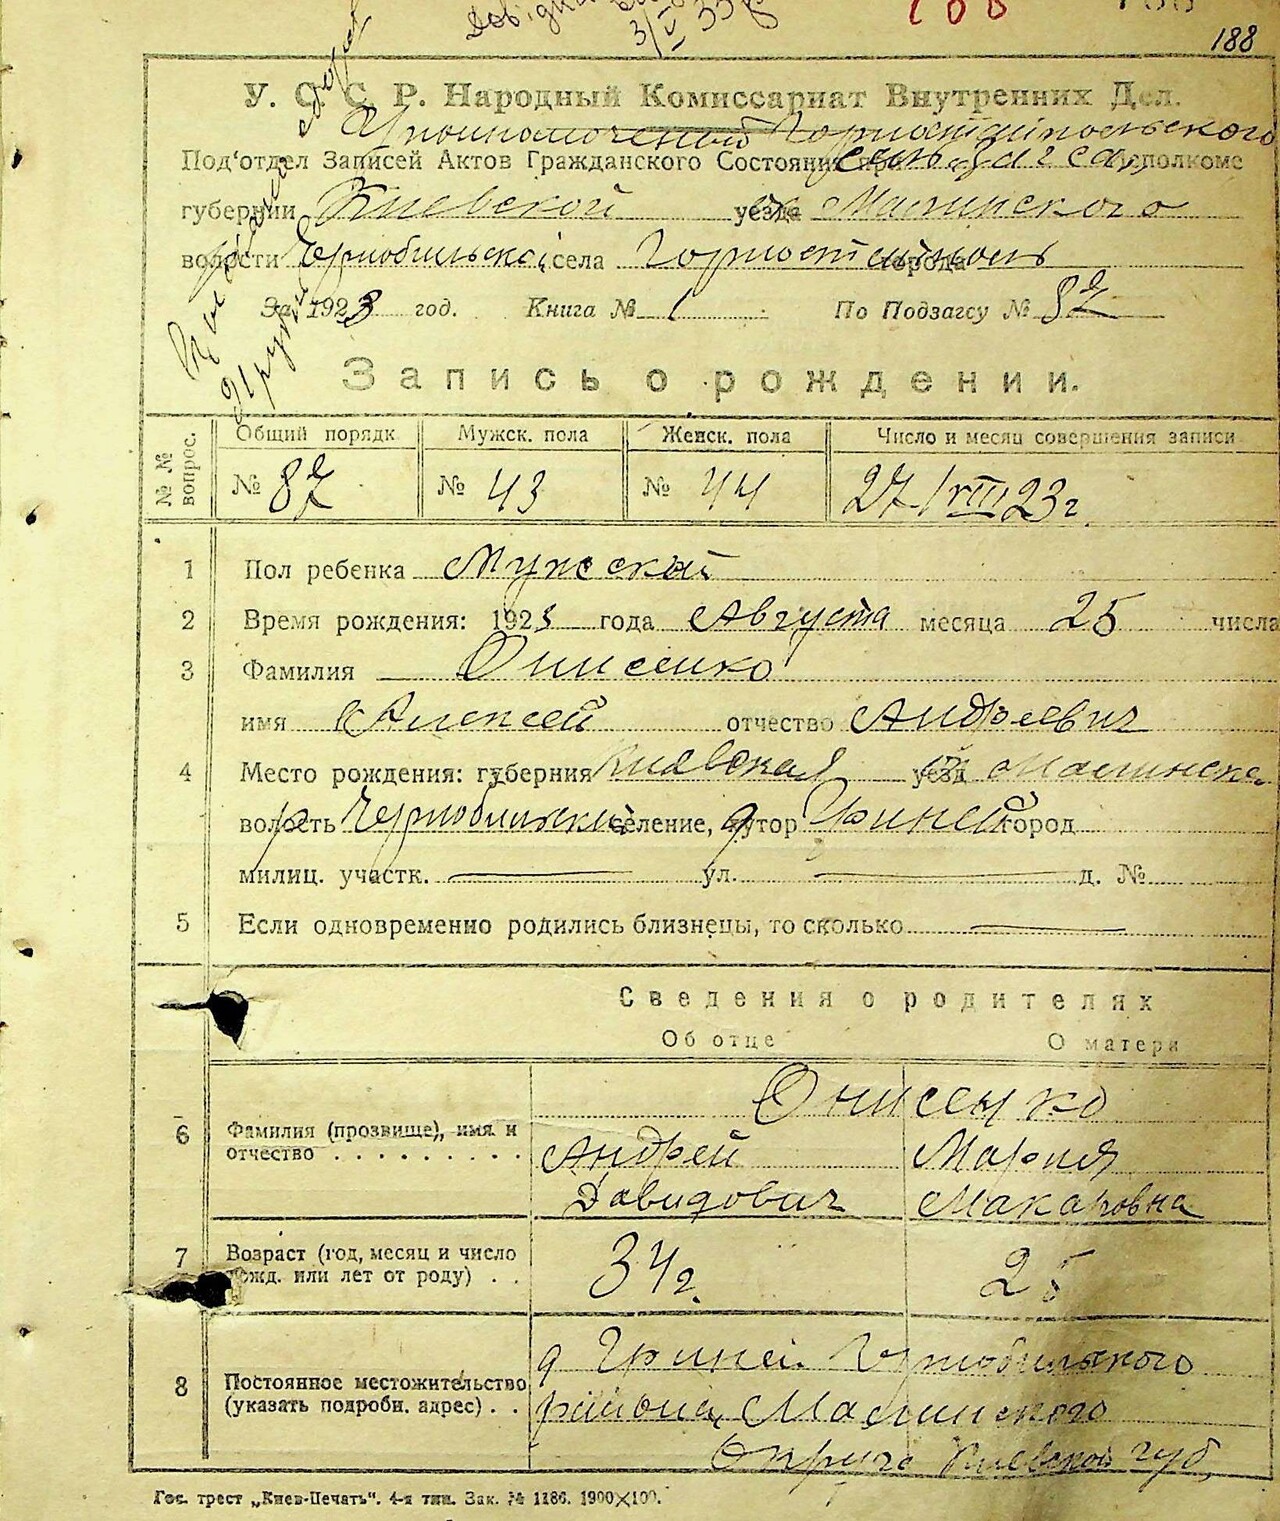 188
188
У. С. С. Р. Народный Комиссариат Внутренних Дел.
Уполномоченный Горностайпольского
Под‘отдел Записей Актов Гражданского Состояния при сель Загса, исполкоме
губернии Киевской уезда Малинского
волости Чернобыльской села Горностайполь города
За 1923 год. Книга № 1 По Подзагсу № 87
Запись о рождении.
№№ вопрос. Общий порядк Мужск. пола Женск. пола Число и месяц совершения записи
№ 87 № 43 № 44 27/VIII 23 г.
1 Пол ребенка Мужской
2 Время рождения: 1923 года Августа месяца 25 числа
3 Фамилия Онисенко
имя Алексей отчество Андреевич
4 Место рождения: губерния Киевская уезд Малинск.
волость р Чернобыльский селение, хутор д Финей город
милиц. участк. — ул. — д. №
5 Если одновременно родились близнецы, то сколько —
Сведения о родителях
Об отце О матери
Онисенко
6 Фамилия (прозвище), имя и отчество . . . . . . . . . Андрей Мария
Давидович Макаровна
7 Возраст (год, месяц и число рожд. или лет от роду) . . 34 г. 25
8 Постоянное местожительство (указать подробн. адрес) . . д Чернобыльского
района, Малинского
Округа Киевской губ.
Гос. трест „Киев-Печать“. 4-я тип. Зак. № 1186. 1900×100.